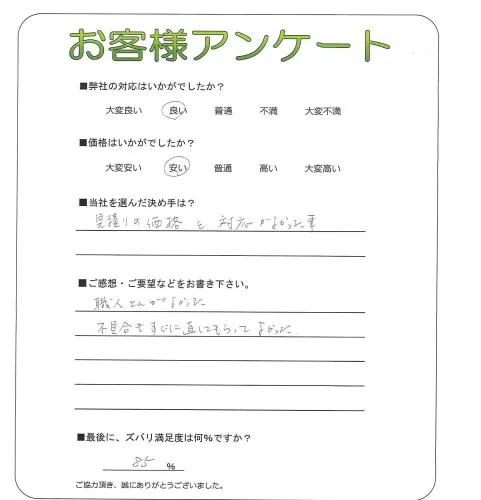 お客様アンケート
■弊社の対応はいかがでしたか？
大変良い 良い 普通 不満 大変不満
■価格はいかがでしたか？
大変安い 安い 普通 高い 大変高い
■当社を選んだ決め手は？
見積りの価格と対応がよかった事
■ご感想・ご要望などをお書き下さい。
職人さんがよかった
不具合もすぐに直してもらってよかった.
■最後に、ズバリ満足度は何%ですか？
85 %
ご協力頂き、誠にありがとうございました。